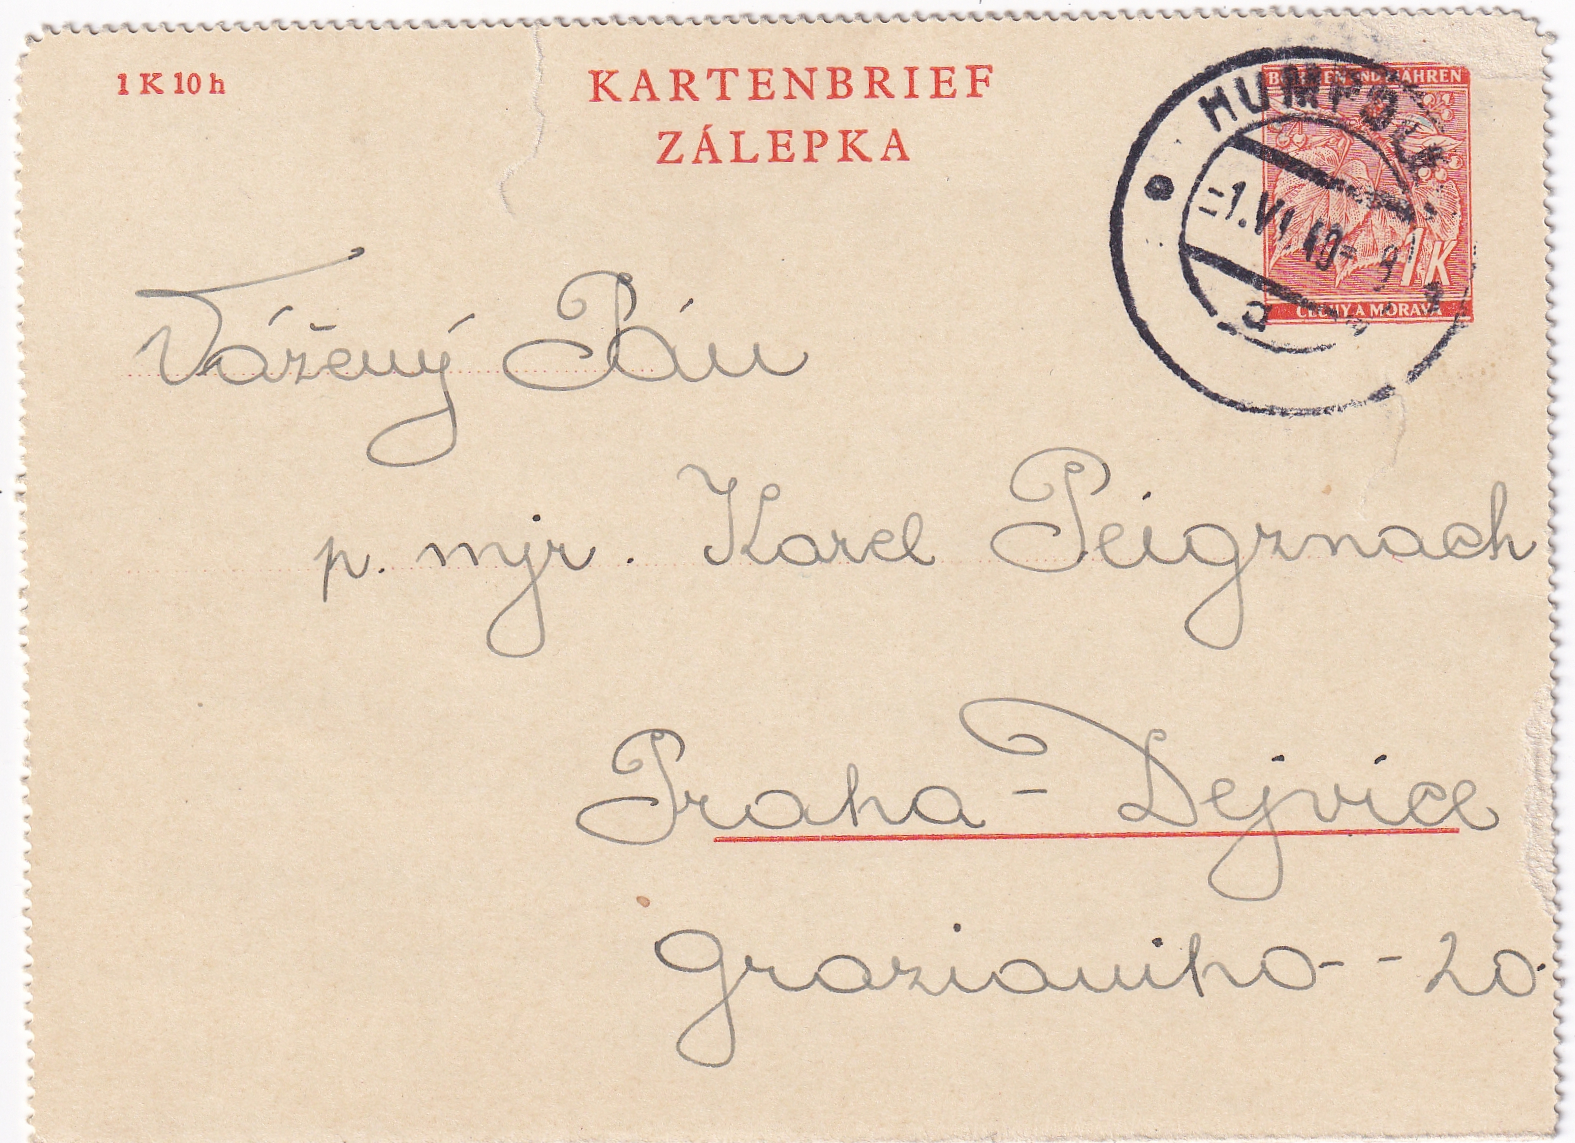 1 K 10 h
KARTENBRIEF
ZÁLEPKA
BÖHMEN UND MÄHREN
1 K
ČECHY A MORAVA
HUMPOLEC
-1.VI.40- 9
a
Vážený Pán
p. mjr. Karel Peigznach
Praha - Dejvice
Grazianiho - - 20.